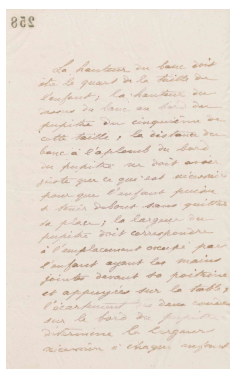 258
La hauteur du banc doit
être le quart de la taille de
l'enfant; la hauteur du
banc au bord du
pupitre du cinquième de
cette taille, la distance du
banc à l'aplomb du bord
du pupitre ne doit avoir
juste que ce qui est nécessaire
pour que l'enfant puisse
se tenir debout sans quitter
sa place; la largeur du
pupitre doit correspondre
à l'emplacement occupé par
l'enfant ayant les mains
jointes devant sa poitrine
et appuyées sur la table;
l'écartement des
sur le bord du pupitre
détermine la largeur
nécessaire à chaque